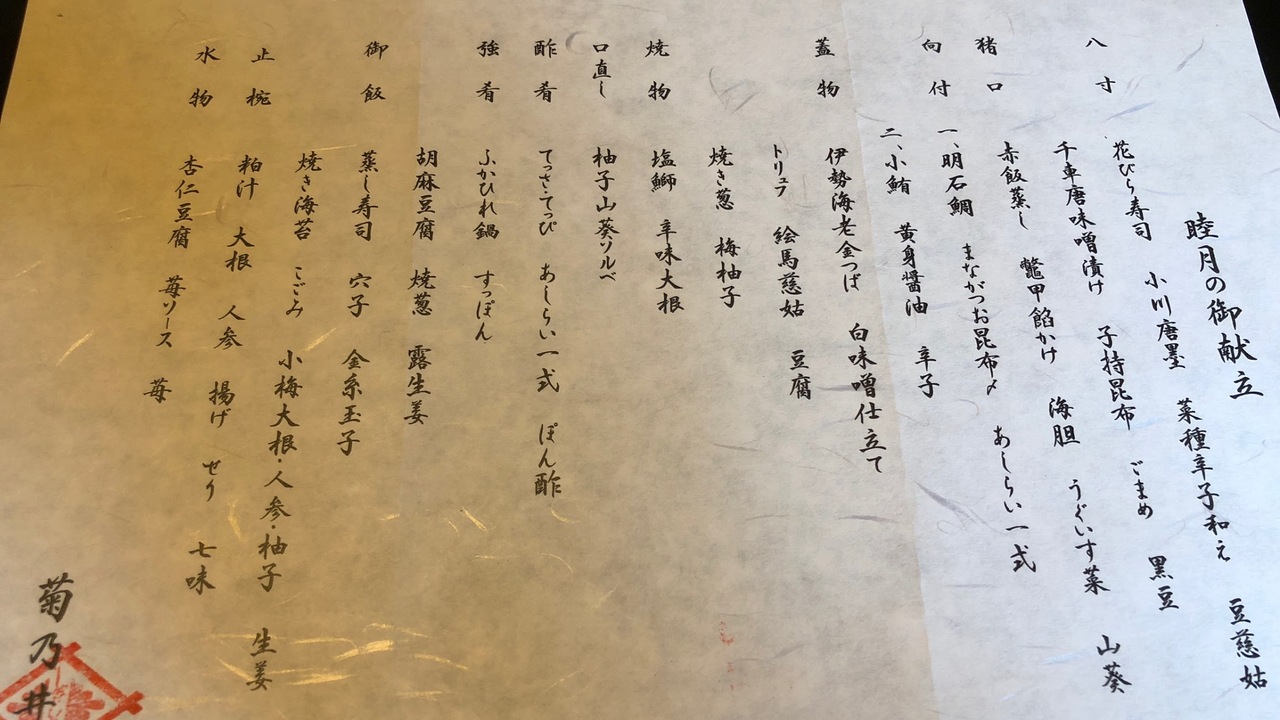 睦月の御献立
八寸 花びら寿司 小川唐墨 菜種辛子和え 豆慈姑
千車唐味噌漬け 子持昆布 ごまめ 黒豆
猪口 赤飯蒸し 鼈甲餡かけ 海胆 うぐいす菜 山葵
向付 一、明石鯛 まながつお昆布〆 あしらい一式
二、小鮪 黄身醤油 辛子
蓋物 伊勢海老金つば 白味噌仕立て
トリュフ 絵馬慈姑 豆腐
焼き葱 梅柚子
焼物 塩鰤 辛味大根
口直し 柚子山葵ソルベ
酢肴 てっさ・てっぴ あしらい一式 ぽん酢
強肴 ふかひれ鍋 すっぽん
胡麻豆腐 焼葱 露生姜
御飯 蒸し寿司 穴子 金糸玉子
焼き海苔 こごみ 小梅大根・人参・柚子 生姜
止椀 粕汁 大根 人参 揚げ せり 七味
水物 杏仁豆腐 苺ソース 苺
菊乃井